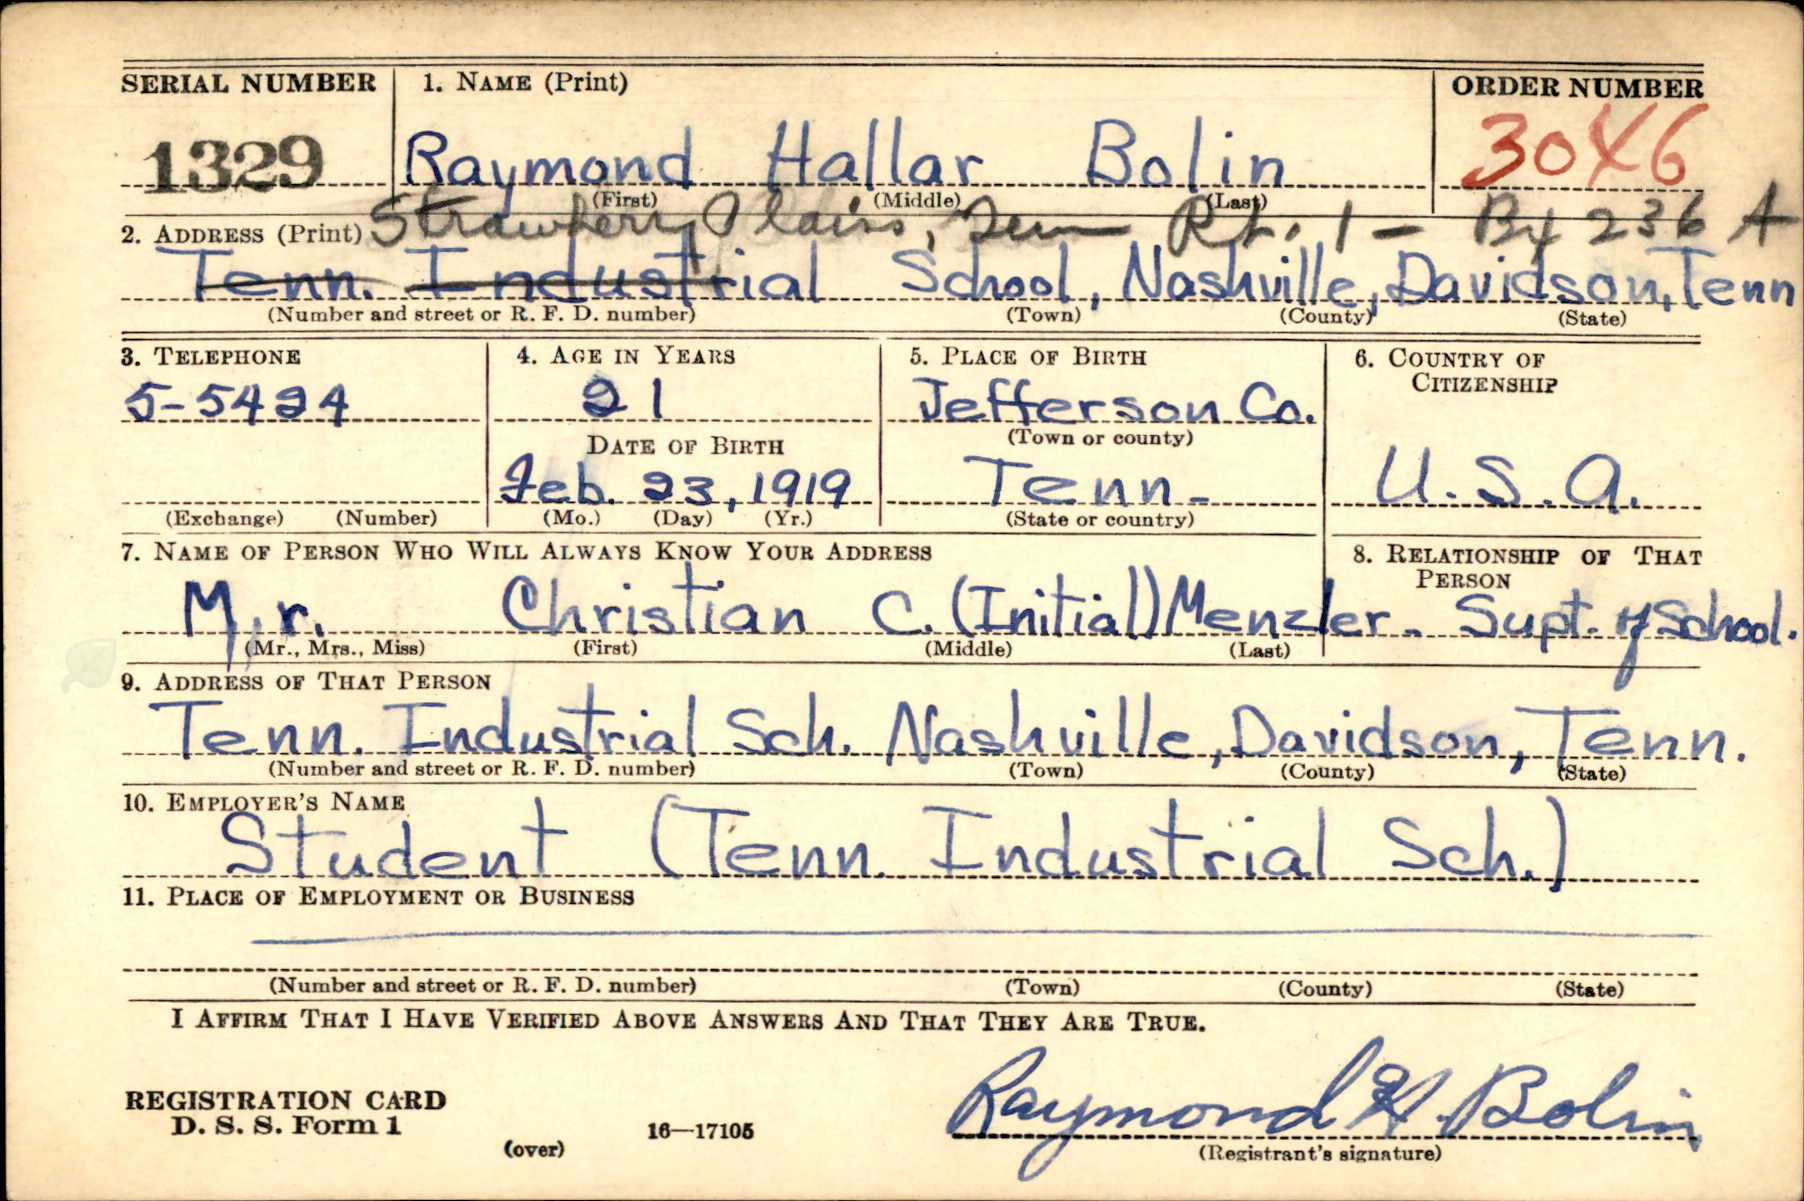 SERIAL NUMBER 1. NAME (Print) ORDER NUMBER
1329 Raymond Hallar Bolin 3046
(First) (Middle) (Last)
Strawberry Plains, Tenn Rt. 1 - Bx 236 A
2. ADDRESS (Print)
Tenn. Industrial School, Nashville, Davidson, Tenn
(Number and street or R. F. D. number) (Town) (County) (State)
3. TELEPHONE 4. AGE IN YEARS 5. PLACE OF BIRTH 6. COUNTRY OF
CITIZENSHIP
5-5424 21 Jefferson Co.
(Town or county)
DATE OF BIRTH
Feb. 23, 1919 Tenn- U.S.A.
(Exchange) (Number) (Mo.) (Day) (Yr.) (State or country)
7. NAME OF PERSON WHO WILL ALWAYS KNOW YOUR ADDRESS 8. RELATIONSHIP OF THAT
PERSON
Mr. Christian C. (Initial) Menzler- Supt. of School.
(Mr., Mrs., Miss) (First) (Middle) (Last)
9. ADDRESS OF THAT PERSON
Tenn. Industrial Sch. Nashville, Davidson, Tenn.
(Number and street or R. F. D. number) (Town) (County) (State)
10. EMPLOYER'S NAME
Student (Tenn. Industrial Sch.)
11. PLACE OF EMPLOYMENT OR BUSINESS
(Number and street or R. F. D. number) (Town) (County) (State)
I AFFIRM THAT I HAVE VERIFIED ABOVE ANSWERS AND THAT THEY ARE TRUE.
REGISTRATION CARD
D. S. S. Form 1
(over) 16—17105
Raymond H. Bolin
(Registrant's signature)